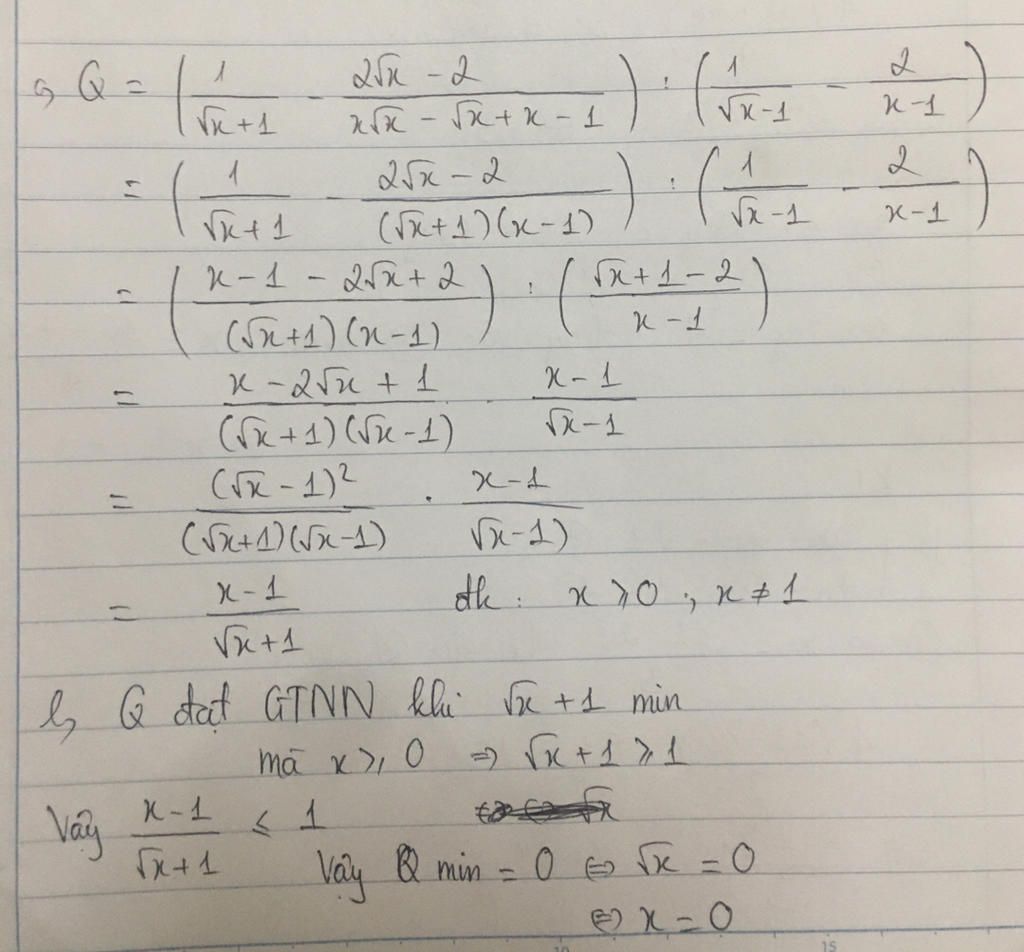 a, Q = (1/(√x+1) - (2√x - 2)/(x√x - √x + x - 1)) : (1/(√x-1) - 2/(x-1))
= (1/(√x+1) - (2√x - 2)/((√x+1)(x-1))) : (1/(√x-1) - 2/(x-1))
= ((x-1 - 2√x + 2)/((√x+1)(x-1))) : ((√x+1-2)/(x-1))
= (x - 2√x + 1)/((√x+1)(√x-1)) . (x-1)/(√x-1)
= (√x-1)²/((√x+1)(√x-1)) . (x-1)/(√x-1))
= (x-1)/(√x+1) đk : x ⩾ 0 ; x ≠ 1
b, Q đạt GTNN khi √x + 1 min
mà x ⩾ 0 => √x + 1 ⩾ 1
Vậy (x-1)/(√x+1) ≤ 1
Vậy Q min = 0 <=> √x = 0
<=> x = 0
10 15